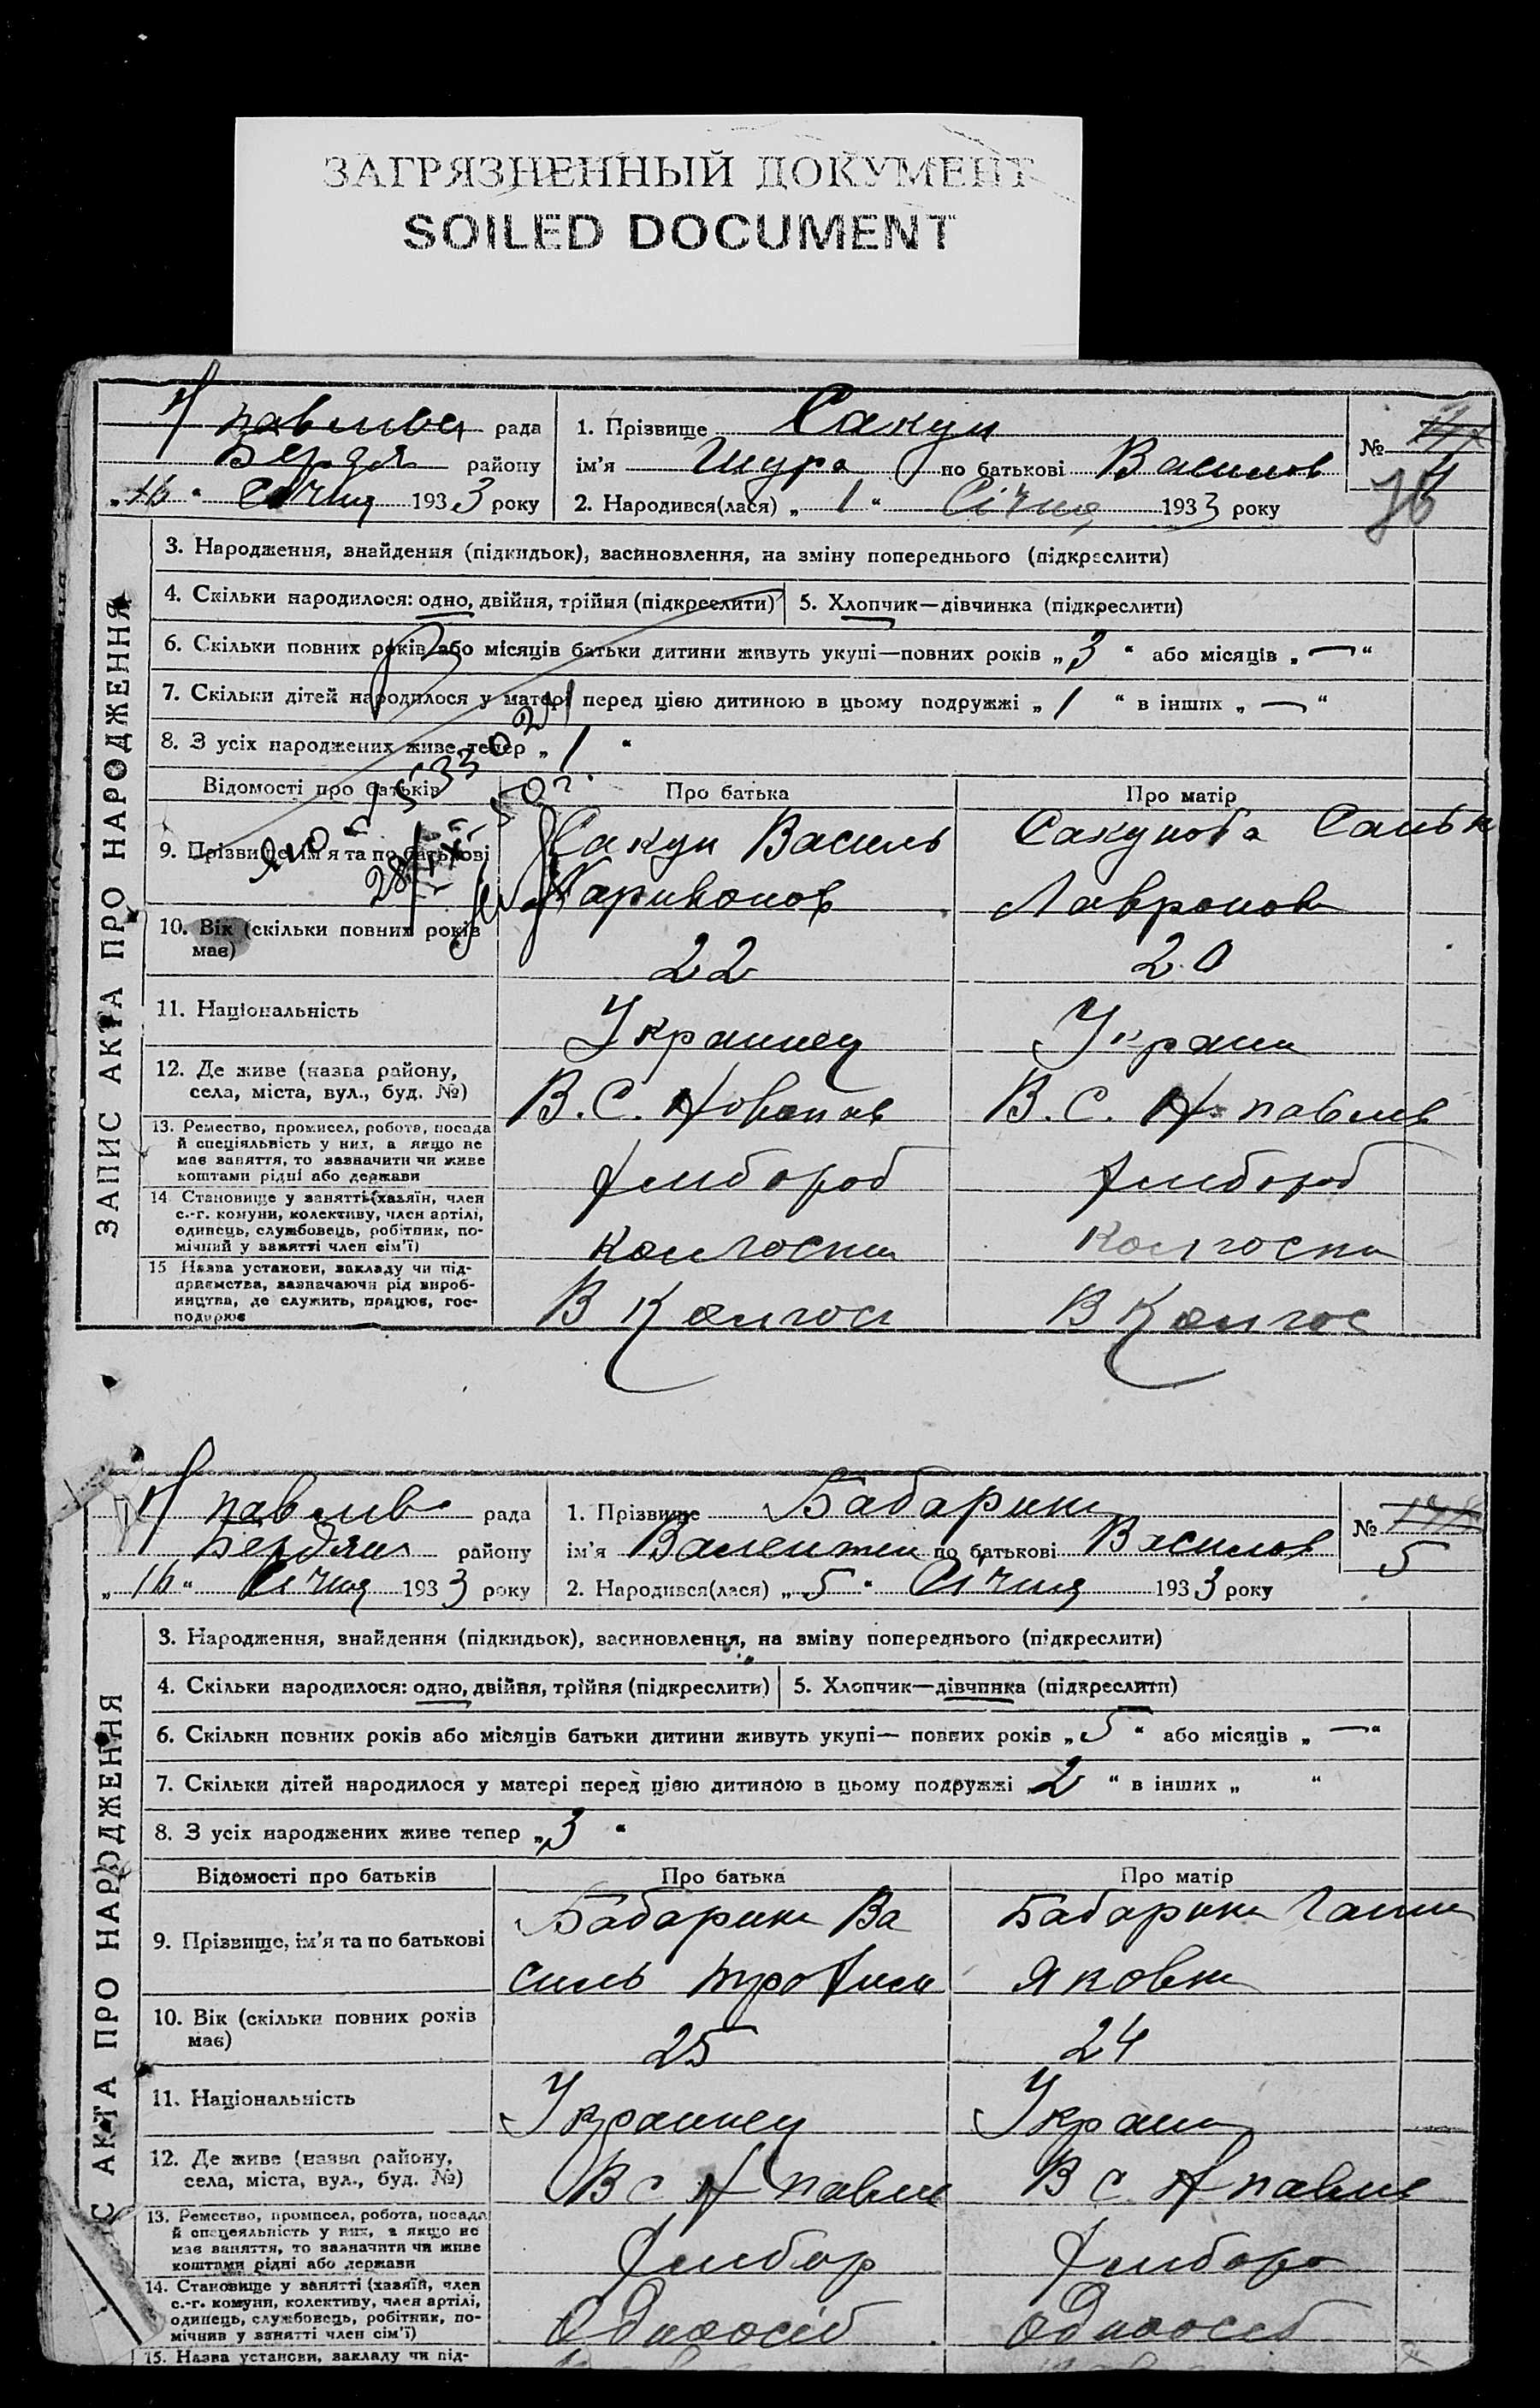 ЗАГРЯЗНЕННЫЙ ДОКУМЕНТ
SOILED DOCUMENT
рада
Бердя району
"16" Січня 1933 року
1. Прізвище Сакун
ім'я Шура по батькові Василов
2. Народився(лася) "1" Січня 1933 року
№
4
76
ЗАПИС АКТА ПРО НАРОДЖЕННЯ
3. Народження, знайдення (підкидьок), васиновлення, на зміну попереднього (підкреслити)
4. Скільки народилося: одно, двійня, трійня (підкреслити)
5. Хлопчик—дівчинка (підкреслити)
6. Скільки повних років або місяців батьки дитини живуть укупі—повних років "3" або місяців "—"
7. Скільки дітей народилося у матері перед цією дитиною в цьому подружжі "1" в інших "—"
8. З усіх народжених живе тепер "1"
Відомості про батьків
Про батька
Про матір
9. Прізвище, ім'я та по батькові
Сакун Василь
Сакунова
10. Вік (скільки повних років
має)
22
20
11. Національність
Украинец
Украин
12. Де живе (назва району,
села, міста, вул., буд. №)
В. С.
В. С. Н. павлів
13. Ремество, промисел, робота, посада
й спеціяльність у них, а якщо не
має заняття, то зазначити чи живе
коштами рідні або держави
хлібороб
хлібороб
14. Становище у занятті (хазяїн, член
с.-г. комуни, колективу, член артілі,
одинець, службовець, робітник, по-
мічний у занятті член сім'ї)
колгоспн
колгоспн
15. Назва установи, закладу чи під-
приємства, зазначаючи рід вироб-
ництва, де служить, працює, гос-
подарює
В Колгос
В Колгос
Н павлів рада
Бердян району
"16" Січня 1933 року
1. Прізвище Бабарики
ім'я Валентин по батькові Василов
2. Народився(лася) "5" Січня 1933 року
№
5
АКТА ПРО НАРОДЖЕННЯ
3. Народження, знайдення (підкидьок), васиновлення, на зміну попереднього (підкреслити)
4. Скільки народилося: одно, двійня, трійня (підкреслити)
5. Хлопчик—дівчинка (підкреслити)
6. Скільки повних років або місяців батьки дитини живуть укупі— повних років "5" або місяців "—"
7. Скільки дітей народилося у матері перед цією дитиною в цьому подружжі 2 " в інших " "
8. З усіх народжених живе тепер "3"
Відомості про батьків
Про батька
Про матір
9. Прізвище, ім'я та по батькові
Бабарики Ва
силь Трофим
Бабарики Ганна
Яковна
10. Вік (скільки повних років
має)
25
24
11. Національність
Украинец
Украин
12. Де живе (назва району,
села, міста, вул., буд. №)
В с Н павлів
В с. Н павлів
13. Ремество, промисел, робота, посада
й спецеяльність у них, а якщо не
має заняття, то зазначити чи живе
коштами рідні або держави
хлібор
хлібор
14. Становище у занятті (хазяїн, член
с.-г. комуни, колективу, член артілі,
одинець, службовець, робітник, по-
мічник у занятті член сім'ї)
Одноосіб
Одноосіб
15. Назва установи, закладу чи під-